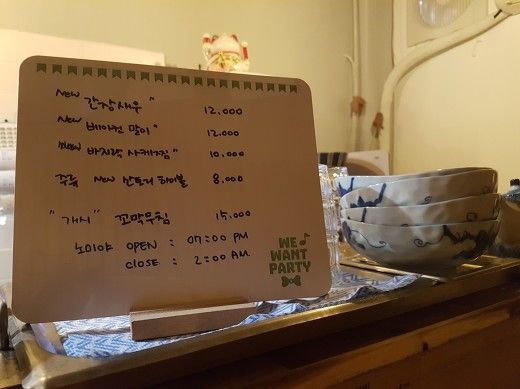 New 간장새우" 12,000
New 베이컨 말이" 12,000
New 바지락 사케찜" 10,000
주류 New 산토리 하이볼 8,000
"개시" 꼬막무침 15,000
노미야 OPEN : 07:00 PM
CLOSE : 2:00 A.M
WE
WANT
PARTY